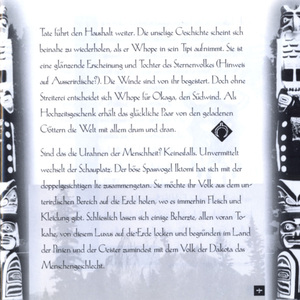 Tate führt den Haushalt weiter. Die unselige Geschichte scheint sich
beinahe zu wiederholen, als er Whope in sein Tipi aufnimmt. Sie ist
eine glänzende Erscheinung und Tochter des Sternenvolkes (Hinweis
auf Ausserirdische?). Die Winde sind von ihr begeistert. Doch ohne
Streiterei entscheidet sich Whope für Okaga, den Südwind. Als
Hochzeitsgeschenk erhält das glückliche Paar von den geladenen
Göttern die Welt mit allem drum und dran.
Sind das die Urahnen der Menschheit? Keinesfalls. Unvermittelt
wechselt der Schauplatz. Der böse Spassvogel Iktomi hat sich mit der
doppelgesichtigen Ite zusammengetan. Sie möchte ihr Volk aus dem un-
terirdischen Bereich auf die Erde holen, wo es immerhin Fleisch und
Kleidung gibt. Schliesslich lassen sich einige Beherzte, allen voran To-
kahe, von diesem Luxus auf die Erde locken und begründen im Land
der Pinien und der Geister zumindest mit dem Volk der Dakota das
Menschengeschlecht.